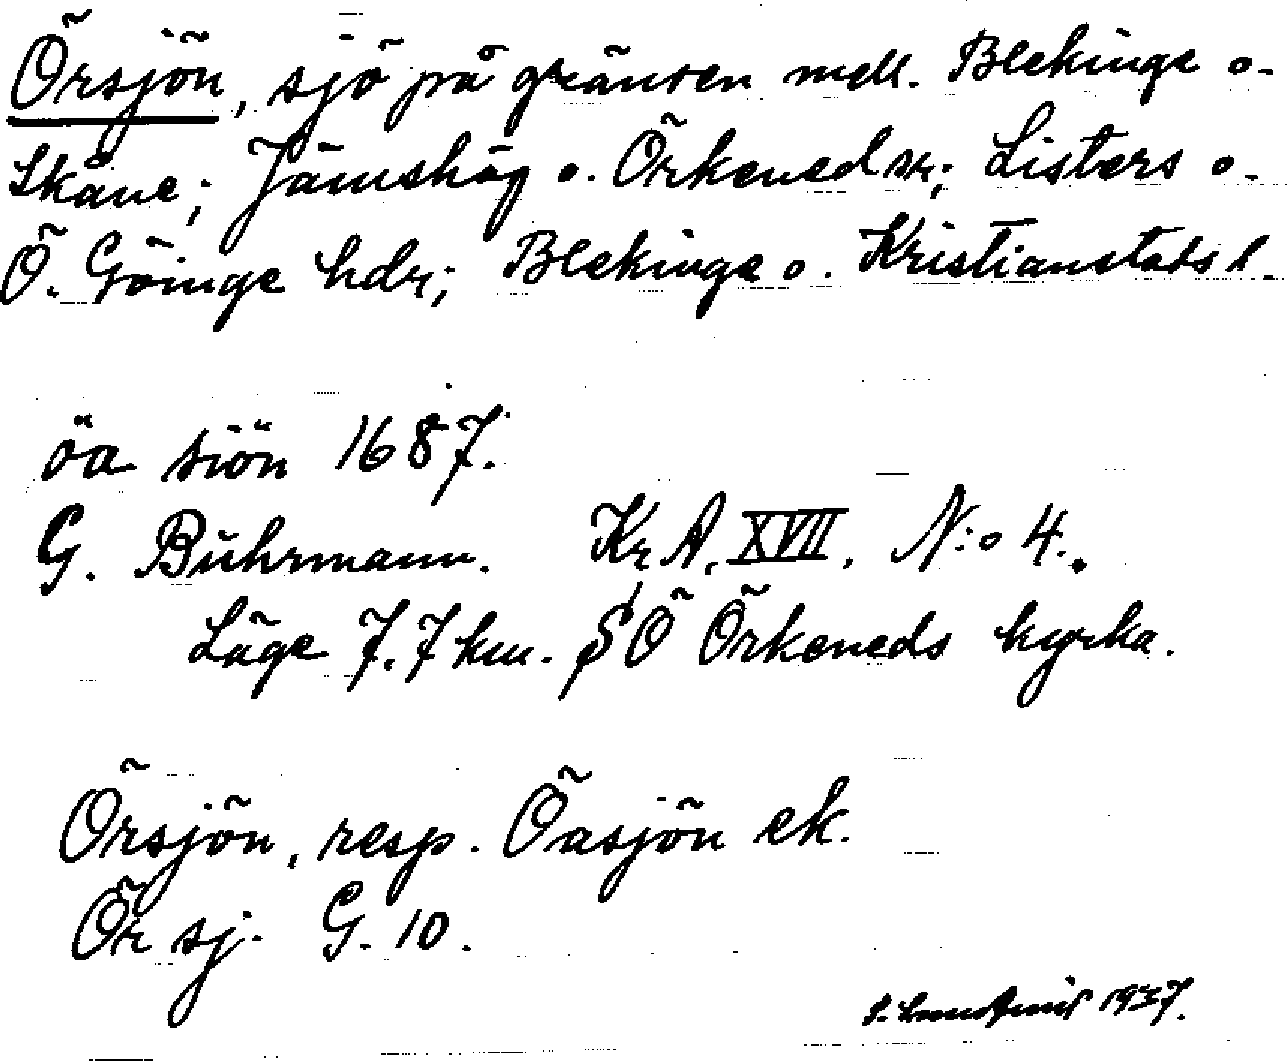 Örsjön, sjö på gränsen mell. Blekinge o.
Skåne; Jämshög o. Örkened sn; Listers o.
Ö. Göinge hdr; Blekinge o. Kristianstads l.
öa siön 1687.
G. Buhrmann. Kr.A. XVII. N:o 4.
Läge 7.7 km. SÖ Örkeneds kyrka.
Örsjön, resp. Öasjön ek.
Ör sj. G. 10.
1937.